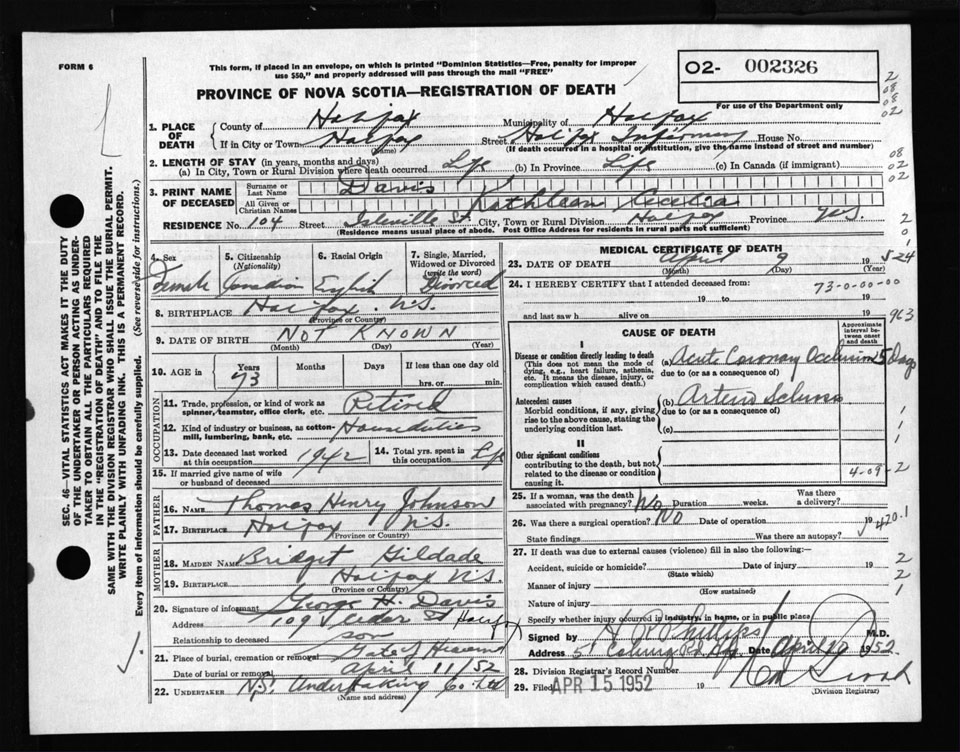 FORM 6
This form, if placed in an envelope, on which is printed "Dominion Statistics—Free, penalty for improper
use $50," and properly addressed will pass through the mail "FREE"
PROVINCE OF NOVA SCOTIA—REGISTRATION OF DEATH
O2- 002326
For use of the Department only
1. PLACE OF DEATH
County of Halifax Municipality of Halifax
If in City or Town Halifax Street Halifax Infirmary House No.
(Name) (If death occurred in a hospital or institution, give the name instead of street and number)
2. LENGTH OF STAY (in years, months and days)
(a) In City, Town or Rural Division where death occurred Life (b) In Province Life (c) In Canada (if immigrant)
3. PRINT NAME OF DECEASED
Surname or Last Name Davis
All Given or Christian Names Kathleen Cecelia
RESIDENCE No. 104 Street Isleville St. City, Town or Rural Division Halifax Province N.S.
(Residence means usual place of abode. Post Office Address for residents in rural parts not sufficient)
4. Sex 5. Citizenship (Nationality) 6. Racial Origin 7. Single, Married, Widowed or Divorced (write the word)
Female Canadian English Divorced
8. BIRTHPLACE Halifax N.S.
(Province or Country)
9. DATE OF BIRTH NOT KNOWN
(Month) (Day) (Year)
10. AGE in Years Months Days If less than one day old
73 hrs. or min.
OCCUPATION
11. Trade, profession, or kind of work as spinner, teamster, office clerk, etc. Retired
12. Kind of industry or business, as cotton-mill, lumbering, bank, etc. House duties
13. Date deceased last worked at this occupation 1942 14. Total yrs. spent in this occupation Life
15. If married give name of wife or husband of deceased
FATHER
16. NAME Thomas Henry Johnson
17. BIRTHPLACE Halifax N.S.
(Province or Country)
MOTHER
18. MAIDEN NAME Bridget
19. BIRTHPLACE Halifax N.S.
(Province or Country)
20. Signature of informant George H. Davis
Address 109 St Halifax
Relationship to deceased son
21. Place of burial, cremation or removal Gate of Heaven
Date of burial or removal April 11/52
22. UNDERTAKER N.S. Undertaking Co. Ltd
(Name and address)
MEDICAL CERTIFICATE OF DEATH
23. DATE OF DEATH April 9 195
(Month) (Day) (Year)
24. I HEREBY CERTIFY that I attended deceased from:
73-0-00-00
19 to 19
and last saw h alive on 19
963
CAUSE OF DEATH
Approximate interval between onset and death
I
Disease or condition directly leading to death (a) Acute Coronary Occlusion 5 Days
(This does not mean the mode of dying, e.g., heart failure, asthenia, etc. It means the disease, injury, or complication which caused death.)
due to (or as a consequence of)
Antecedent causes (b) Arterio Sclerosis
Morbid conditions, if any, giving rise to the above cause, stating the underlying condition last.
due to (or as a consequence of)
(c)
II
Other significant conditions
contributing to the death, but not related to the disease or condition causing it.
4-09-2
25. If a woman, was the death associated with pregnancy? No Duration weeks. Was there a delivery?
26. Was there a surgical operation? No Date of operation 19
State findings Was there an autopsy?
420.1
27. If death was due to external causes (violence) fill in also the following:—
Accident, suicide or homicide? Date of injury 19
(State which)
Manner of injury
(How sustained)
Nature of injury
Specify whether injury occurred in industry, in home, or in public place
Signed by H R Phillips M.D.
Address Date April 10 1952
28. Division Registrar's Record Number
29. Filed APR 15 1952 19
(Division Registrar)
SEC. 46—VITAL STATISTICS ACT MAKES IT THE DUTY
OF THE UNDERTAKER OR PERSON ACTING AS UNDER-
TAKER TO OBTAIN ALL THE PARTICULARS REQUIRED
IN THE "REGISTRATION OF DEATH" AND TO FILE THE
SAME WITH THE DIVISION REGISTRAR WHO SHALL ISSUE THE BURIAL PERMIT.
WRITE PLAINLY WITH UNFADING INK. THIS IS A PERMANENT RECORD.
Every item of information should be carefully supplied. (See reverse side for instructions.)